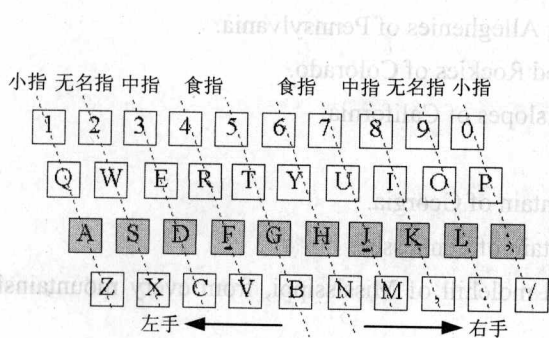 小指 无名指 中指 食指 食指 中指 无名指 小指
1 2 3 4 5 6 7 8 9 0
Q W E R T Y U I O P
A S D F G H J K L ;
Z X C V B N M , . /
左手 右手